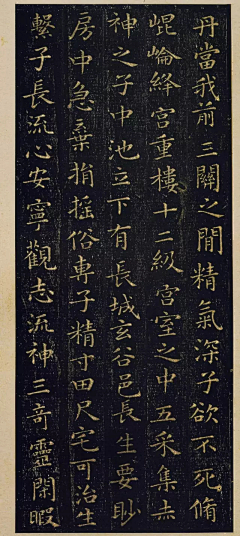 丹當我前三關之閒精氣深子欲不死脩
崐崘絳宮重樓十二級宮室之中五采集赤
神之子中池立下有長城玄谷邑長生要眇
房中急棄捐搖俗專子精寸田尺宅可治生
繫子長流心安寧觀志流神三奇靈閑暇